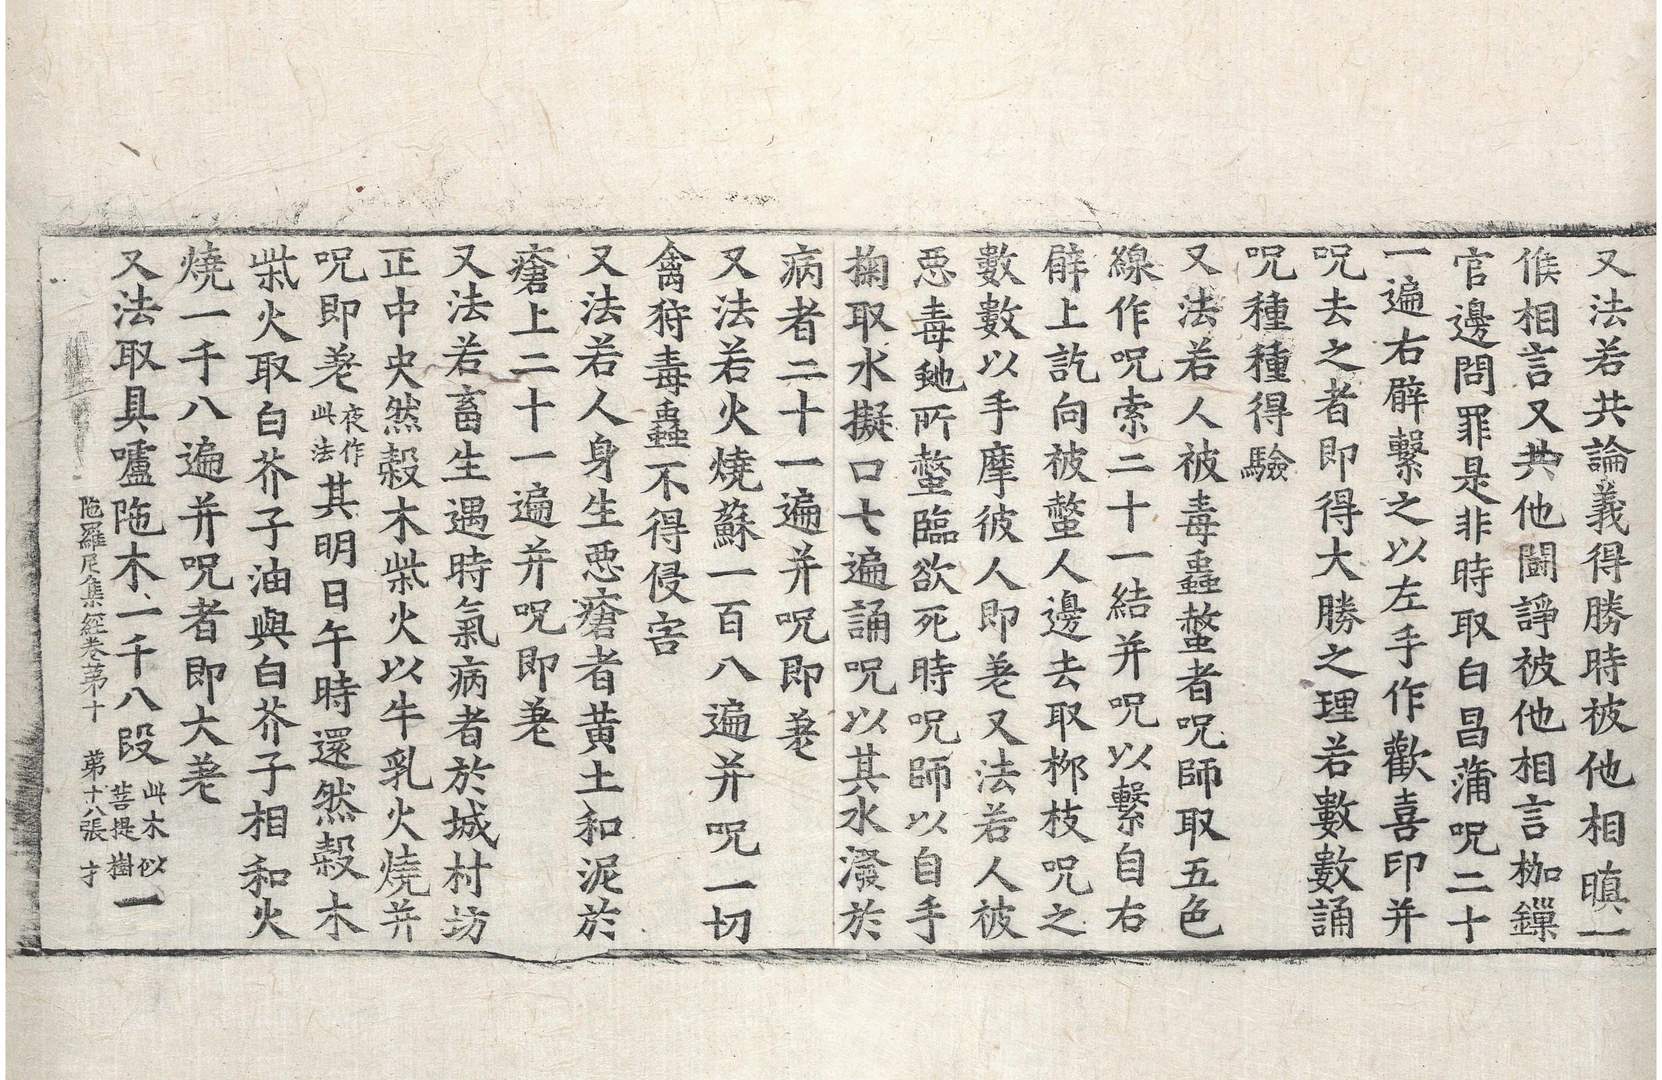 又法若共論義得勝時被他相瞋一
候相言又共他鬪諍被他相言枷鏁
官邊問罪是非時取白昌蒲呪二十
一遍右臂繫之以左手作歡喜印并
呪去之者即得大勝之理若數數誦
呪種種得驗
又法若人被毒蟲螫者呪師取五色
線作呪索二十一結并呪以繫自右
臂上訖向被螫人邊去取柳枝呪之
數數以手摩彼人即差又法若人被
惡毒虵所螫臨欲死時呪師以自手
掬取水擬口七遍誦呪以其水潑於
病者二十一遍并呪即差
又法若火燒蘇一百八遍并呪一切
禽狩毒蟲不得侵害
又法若人身生惡瘡者黃土和泥於
瘡上二十一遍并呪即差
又法若畜生遇時氣病者於城村坊
正中央然榖木柴火以牛乳火燒并
呪即差夜作此法其明日午時還然榖木
柴火取白芥子油與白芥子相和火
燒一千八遍并呪者即大差
又法取具嚧陁木一千八段此木似菩提樹一
陁羅尼集經卷第十 第十八張 才